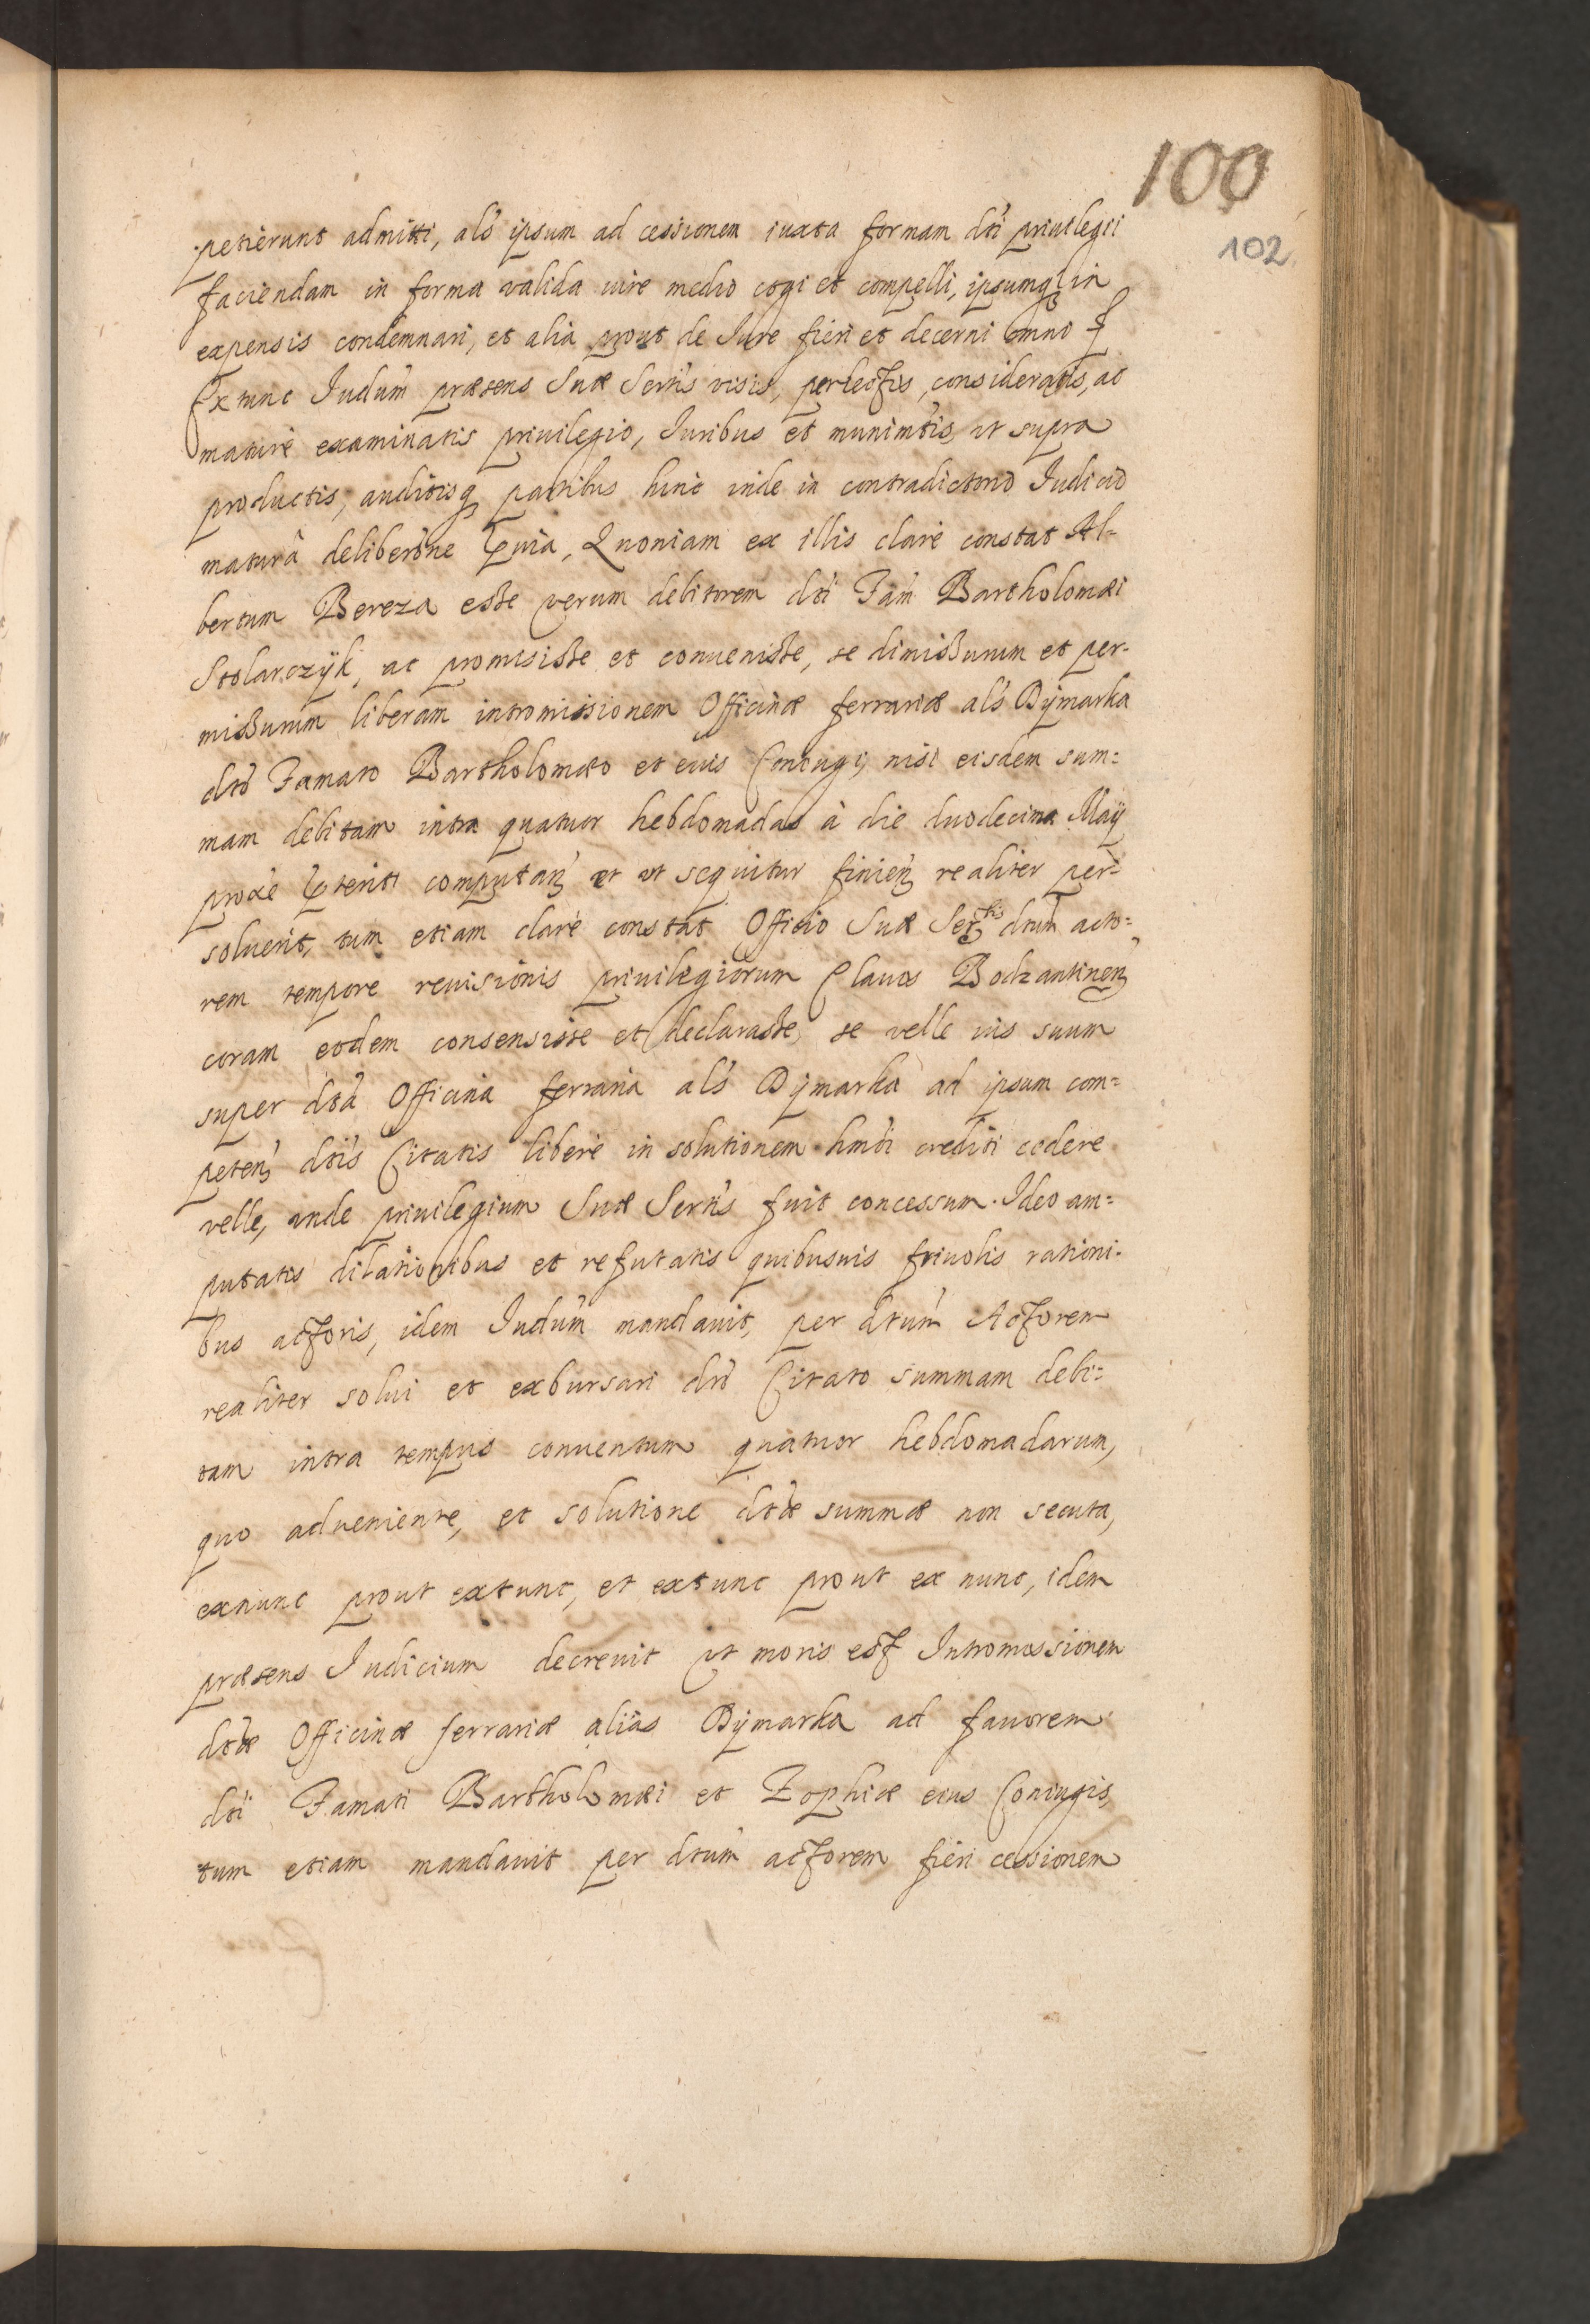 100
102
petierunt admitti, als ipsum ad cessionem iuxta formam dti priuilegii
faciendam in forma valida iure medio cogi et compelli, ipsumq in
expensis condemnari, et alia prout de Iure fieri et decerni omni
Extunc Iudum præsens Suæ Sertis visis, perlectis, consideratis, ac
mature examinatis priuilegio, Iuribus et munimtis, vt supra
productis, auditisq partibus hinc inde in contradictorio Iudicio
matura deliberone præuia, Quoniam ex illis clare constat Al-
bertum Bereza esse verum debitorem dti Fam Bartholomæi
Stolarczÿk, ac promisisse et conuenisse, se dimissurum et per-
missurum liberam intromissionem Officinæ ferrariæ als Dÿmarka
dto Famato Bartholomæo et eius Coniugi, nisi eisdem sum=
mam debitam intra quatuor hebdomadas à die duodecima Maÿ
proxe præteriti computan et vt sequitur finien realiter per=
soluerit, tum etiam claré constat Officio Suæ Sertis dtum acto=
rem tempore reuisionis priuilegiorum Clauos Bodzantinen
coram eodem consensisse et declarasse, se velle ius suum
super dta Officina ferraria als Dÿmarka ad ipsum com=
peten dtis Citatis libere in solutionem hmdi crediti cedere
velle, unde priuilegium Suæ Sertis fuit concessum. Ideo am=
putatis dilationibus et refutatis quibusuis friuolis rationi-
bus actoris, idem Iudum mandauit, per dtum Actorem
realiter solui et exbursari dto Citato summam debi=
tam intra tempus conuentum quatuor hebdomadarum,
quo adueniente, et solutione dtæ summæ non secuta,
exnunc prout extunc, et extunc prout ex nunc, idem
præsens Iudicium decreuit vt moris est Intromissionem
dtæ Officinæ ferrariæ aliàs Dÿmarka ad fauorem
dti Famati Bartholomæi et Zophiæ eius Coniugis,
tum etiam mandauit per dtum actorem fieri cessionem